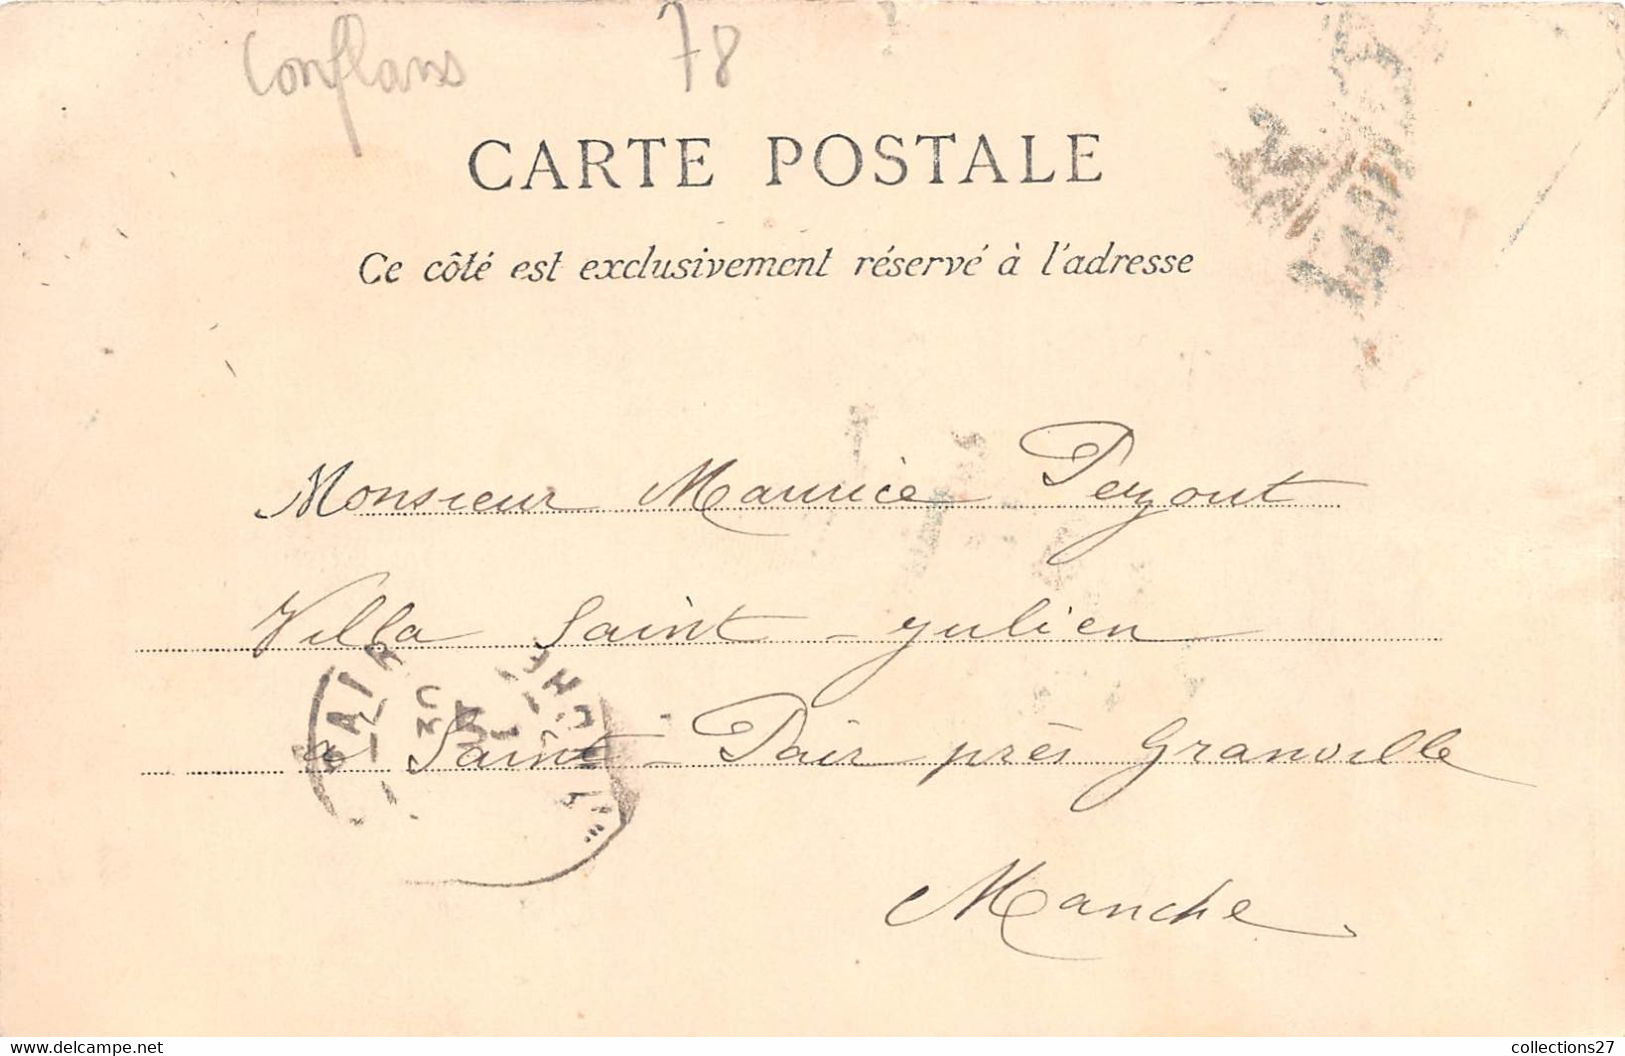 Conflans 78
CARTE POSTALE
Ce côté est exclusivement réservé à l'adresse
Monsieur Maurice Peyrout
Villa Saint-Julien
à Saint-Pair près Granville
Manche
www.delcampe.net
collections27